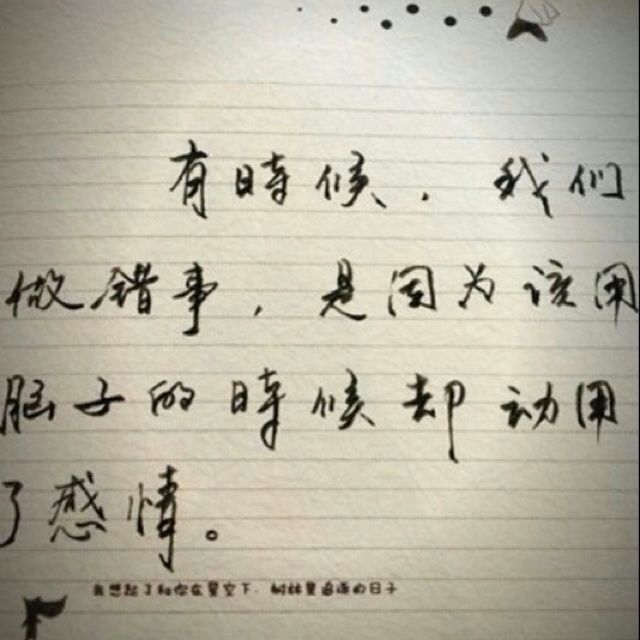 有時候，我们
做错事，是因为该用
脑子的時候却动用
了感情。
我想起了和你在星空下，树林里追逐的日子